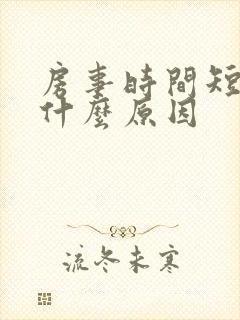 房事時間短
什麼原因
流冬未寒